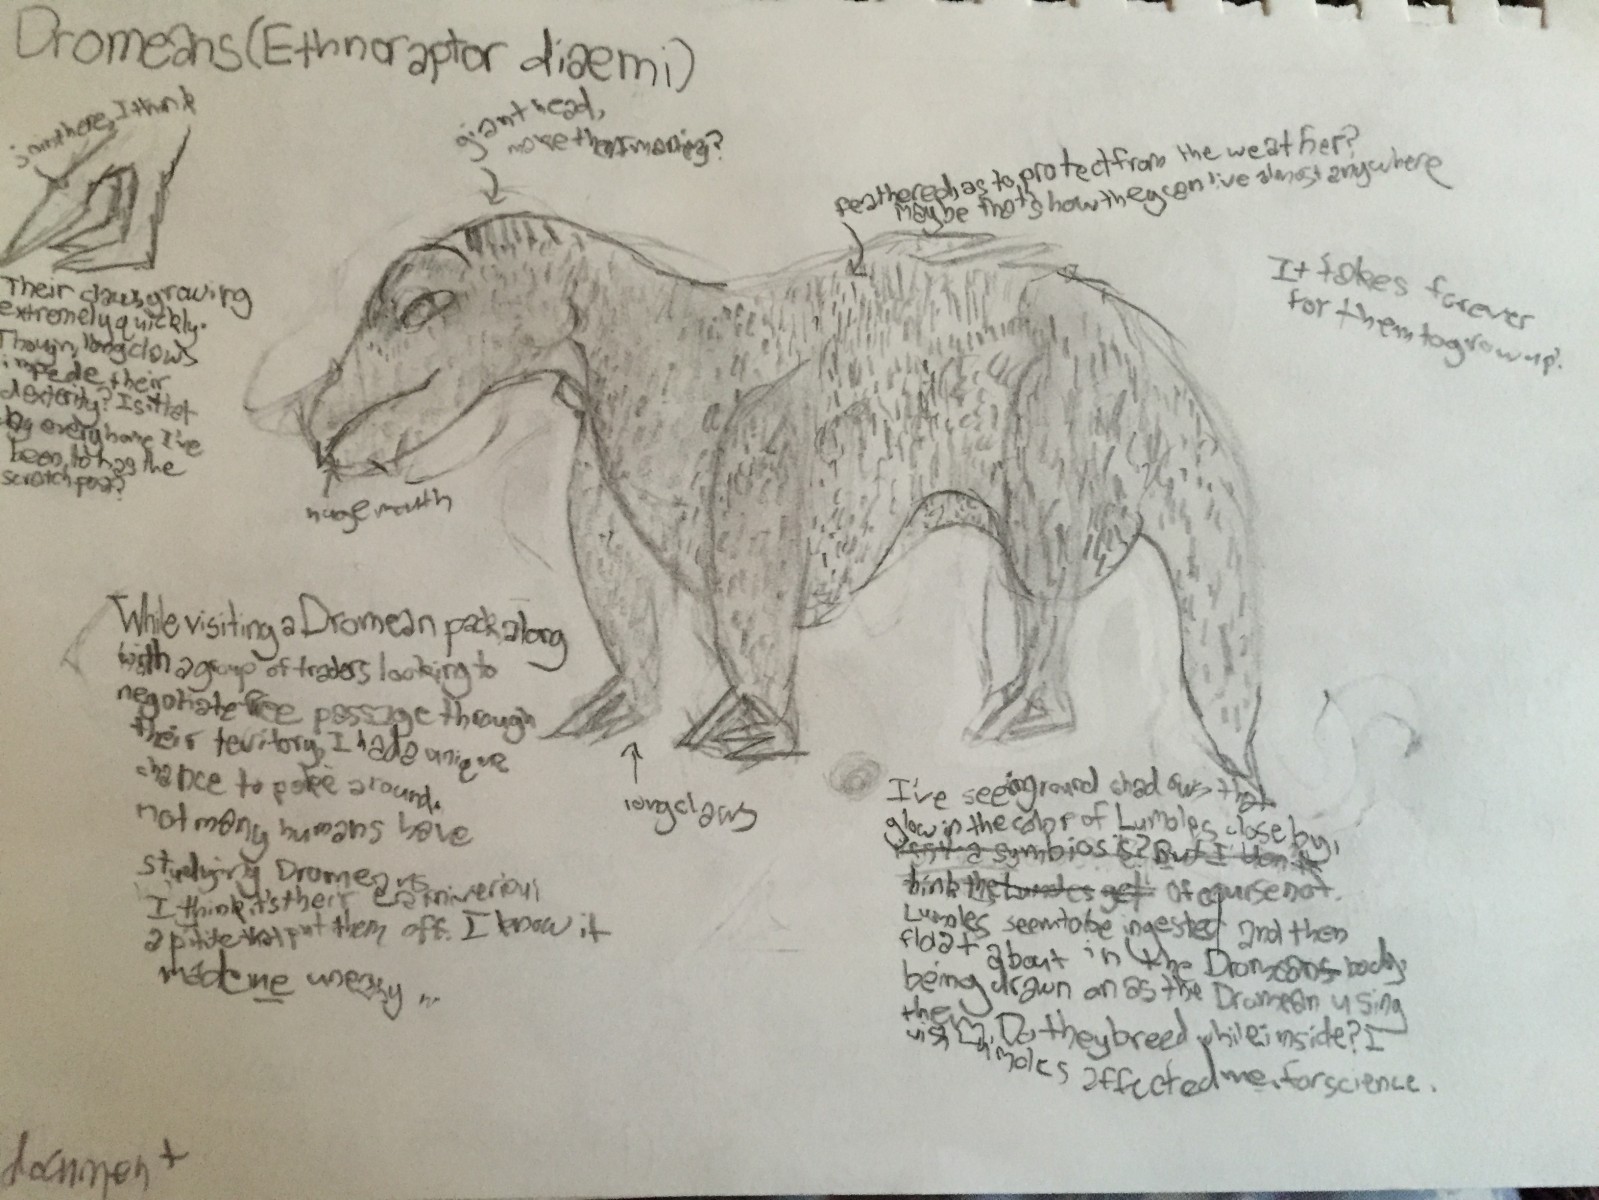 Dromeans (Ethnoraptor diaemi)
joint here, I think
giant head,
more then
feathered has to protect from the weather?
maybe that's how they can live almost anywhere
It takes forever
for them to grow up.
Their claws growing
extremely quickly.
Though, long claws
impede their
dexterity? Is that
every home I've
been, to has the
scratch post?
huge mouth
long claws
While visiting a Dromean pack along
with a group of traders looking to
negotiate free passage through
their territory, I had a unique
chance to poke around.
not many humans have
studying Dromeans
I think it's their
apitite that put them off. I know it
made me uneasy ..
I've seen ground shadows that
glow in the color of Lumoles close by,
a symbiosis? But I don't
think the get Of course not.
Lumoles seem to be ingested and then
float about in the Dromeans body,
being drawn on as the Dromean using
them
Do they breed while inside? I
Lumoles affected me. for science.
document